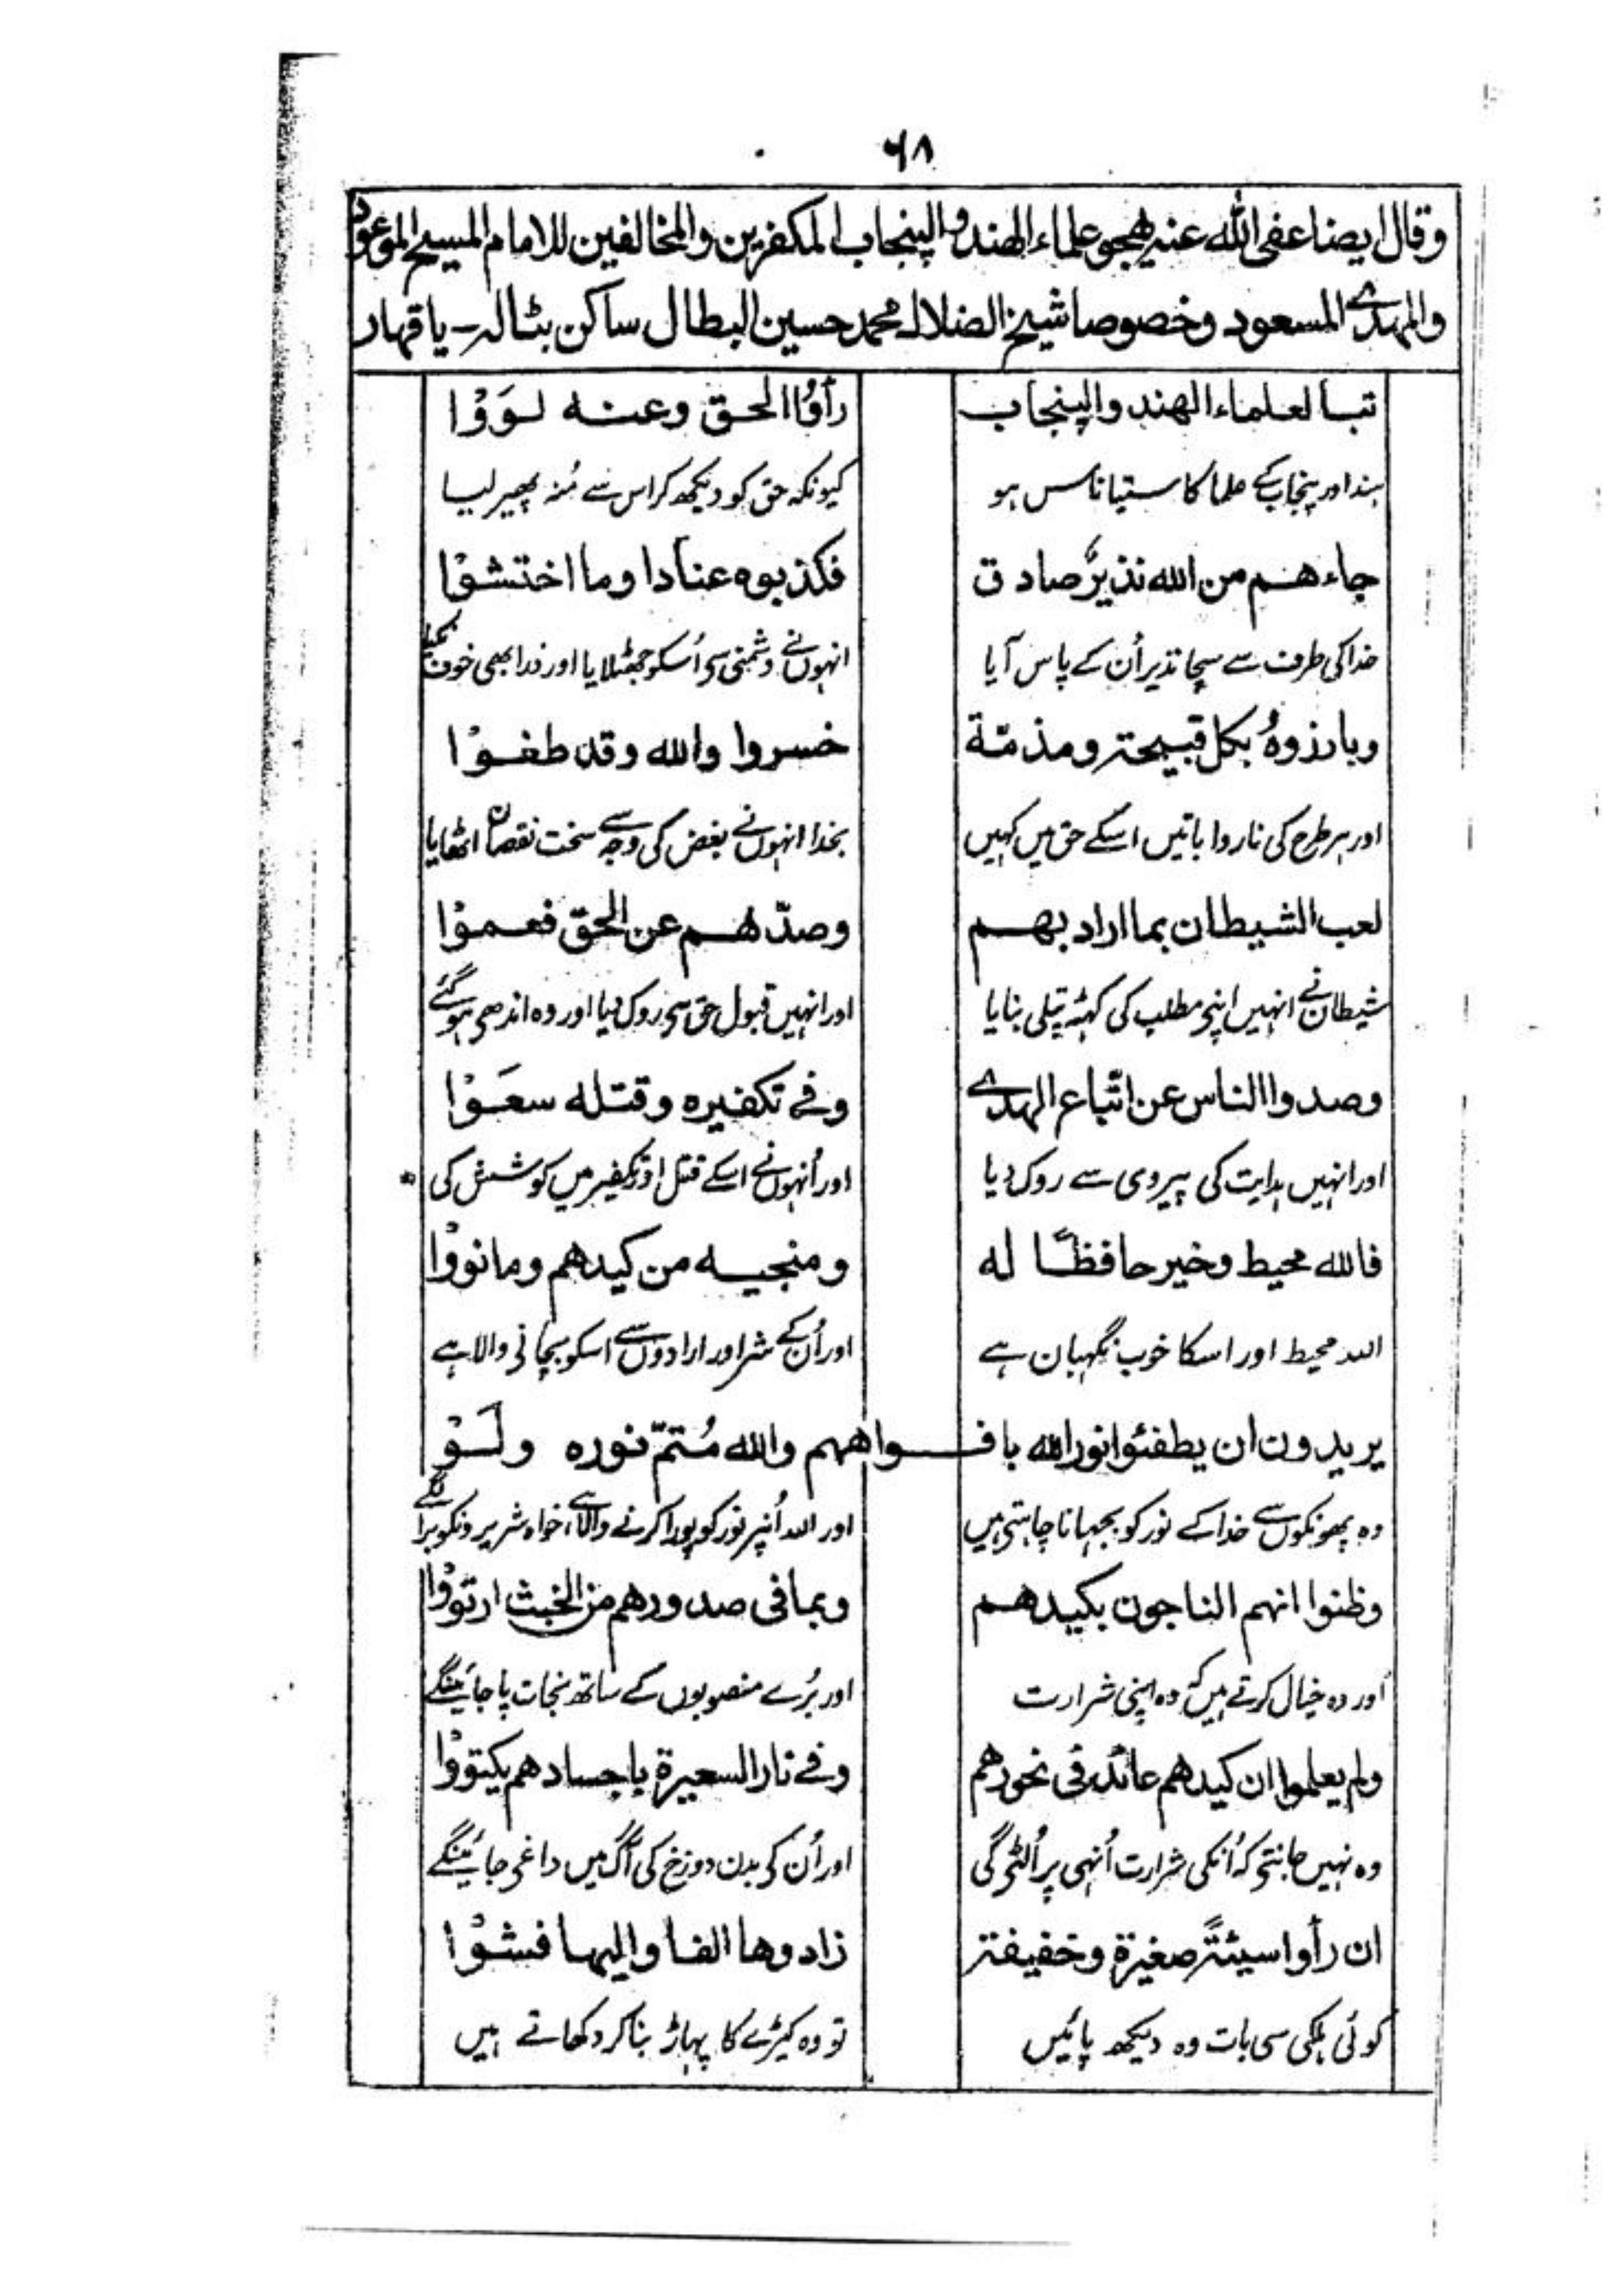 ۶۸
وقال ايضا عفى الله عنه يهجو علماء الهند والپنجاب المكفرين والمخالفين للامام المسيح الموعود
والمهدے المسعود وخصوصا شيخ الضلالہ محمد حسين البطال ساكن بٹالہ – يا قهار
تبا لعلماء الهند والپنجاب رأوُا الحق وعنه لوَوْا
ہند اور پنجاب کے علما کا ستیاناس ہو کیونکہ حق کو دیکھ کر اس سے مُنہ پھیر لیا
جاءهم من الله نذيرٌ صادق فكذبوه عنادا وما اختشوْا
خدا کی طرف سے سچا نذیر اُن کے پاس آیا انہوں نے دشمنی سے اُسکو جھٹلایا اور ذرا بھی خوف نکیا
وبارزوهُ بكل قبيحة ومذمّة خسروا والله وقد طغوْا
اور ہر طرح کی ناروا باتیں اسکے حق میں کہیں بخدا انہوں نے بغض کی وجہ سے سخت نقصان اٹھایا
لعب الشيطان بما اراد بهم وصدّهم عن الحقّ فعموْا
شیطان نے انہیں اپنے مطلب کی کٹھ پتلی بنایا اور انہیں قبول حق سے روک دیا اور وہ اندھے ہو گئے
وصدوا الناس عن اتّباع الهدے وفے تكفيره وقتله سعَوْا
اور انہیں ہدایت کی پیروی سے روک دیا اور اُنہوں نے اسکے قتل اور تکفیر میں کوشش کی
فالله محيط وخير حافظًا له ومنجيه من كيدهم وما نووْا
اللہ محیط اور اسکا خوب نگہبان ہے اور اُن کے شر اور ارادوں سے اسکو بچانے والا ہے
يريدون ان يطفئوا نور الله بافواههم والله مُتمّ نوره ولَوْ
وہ پھونکوں سے خدا کے نور کو بجھانا چاہتے ہیں اور اللہ اپنے نور کو پورا کرنے والا ہے، خواہ شریرونکو برا لگے
وظنوا انهم الناجون بكيدهم وبما فى صدورهم من الخبث ارتووْا
اور وہ خیال کرتے ہیں کہ وہ اپنی شرارت اور بُرے منصوبوں کے ساتھ نجات پا جائینگے
ولم يعلموا ان كيدهم عائد فى نحورهم وفے نار السعيرة باجسادهم يكتووْا
وہ نہیں جانتے کہ اُنکی شرارت اُنہی پر اُلٹے گی اور اُن کے بدن دوزخ کی آگ میں داغے جائینگے
ان رأوا سيئةً صغيرة وخفيفة زادوها الفا واليها فشوْا
کوئی ہلکی سی بات وہ دیکھ پائیں تو وہ کیڑے کا پہاڑ بنا کر دکھاتے ہیں